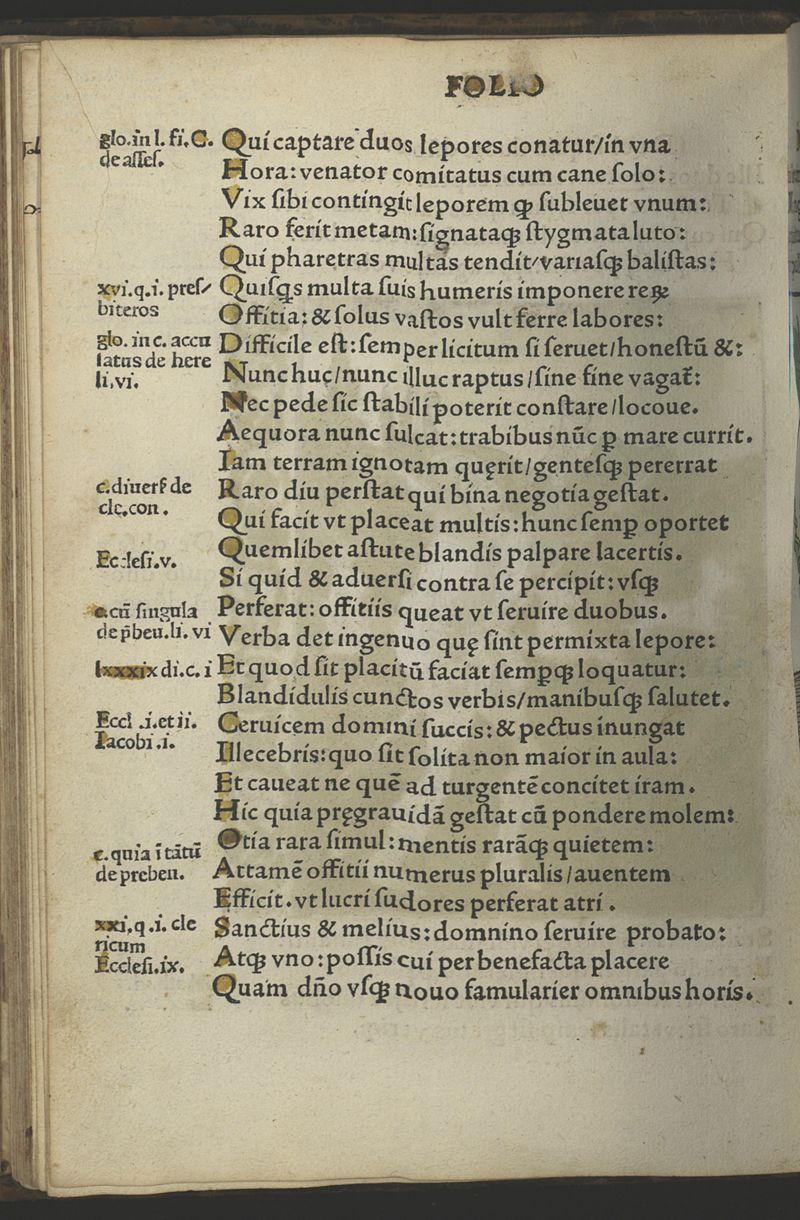 FOLIO
glo. in l. fi. C.
de asses.
Qui captare duos lepores conatur/in vna
Hora: venator comitatus cum cane solo:
Vix sibi contingit leporem ꝙ subleuet vnum:
Raro ferit metam: signataqꝫ stygmata luto:
Qui pharetras multas tendit/variasqꝫ balistas:
xvi. q. i. pres/
biteros
Quisqs multa suis humeris imponere reꝝ
Offitia: & solus vastos vult ferre labores:
glo. in c. accu
latus de here
li. vi.
Difficile est: semper licitum si seruet/honestū &:
Nunc huc/nunc illuc raptus/sine fine vagat᷑:
Nec pede sic stabili poterit constare/locoue.
Aequora nunc sulcat: trabibus nūc ꝑ mare currit.
Iam terram ignotam quęrit/gentesqꝫ pererrat
c. diuers̛ de
clę. con.
Raro diu perstat qui bina negotia gestat.
Qui facit vt placeat multis: hunc semꝑ oportet
Ecclesi. v.
Quemlibet astute blandis palpare lacertis.
Si quid & aduersi contra se percipit: vsqꝫ
c. cū singula
de p̄beu. li. vi
Perferat: offitiis queat vt seruire duobus.
Verba det ingenuo quę sint permixta lepore:
lxxxix di. c. i
Et quod sit placitū faciat sempqꝫ loquatur:
Blandidulis cunctos verbis/manibusqꝫ salutet.
Eccl .i. et ii.
Iacobi .i.
Ceruicem domini succis: & pectus inungat
Illecebris: quo sit solita non maior in aula:
Et caueat ne quē ad turgentē concitet iram.
Hic quia pręgrauidā gestat cū pondere molem:
c. quia ī tātū
de preben.
Otia rara simul: mentis rarāqꝫ quietem:
Attamē offitii numerus pluralis/auentem
Efficit. vt lucri sudores perferat atri.
xxi. q. i. cle
ricum
Ecclesi. ix.
Sanctius & melius: domnino seruire probato:
Atqꝫ vno: possis cui per benefacta placere
Quam dn̄o vsqꝫ nouo famularier omnibus horis.